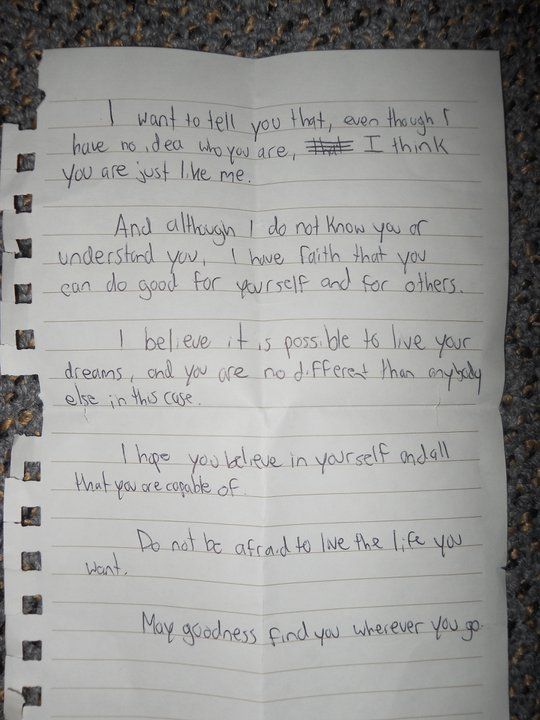 I want to tell you that, even though I
have no idea who you are, that I think
you are just like me.
And although I do not know you or
understand you, I have faith that you
can do good for yourself and for others.
I believe it is possible to live your
dreams, and you are no different than anybody
else in this case.
I hope you believe in yourself and all
that you are capable of.
Do not be afraid to live the life you
want.
May goodness find you wherever you go.